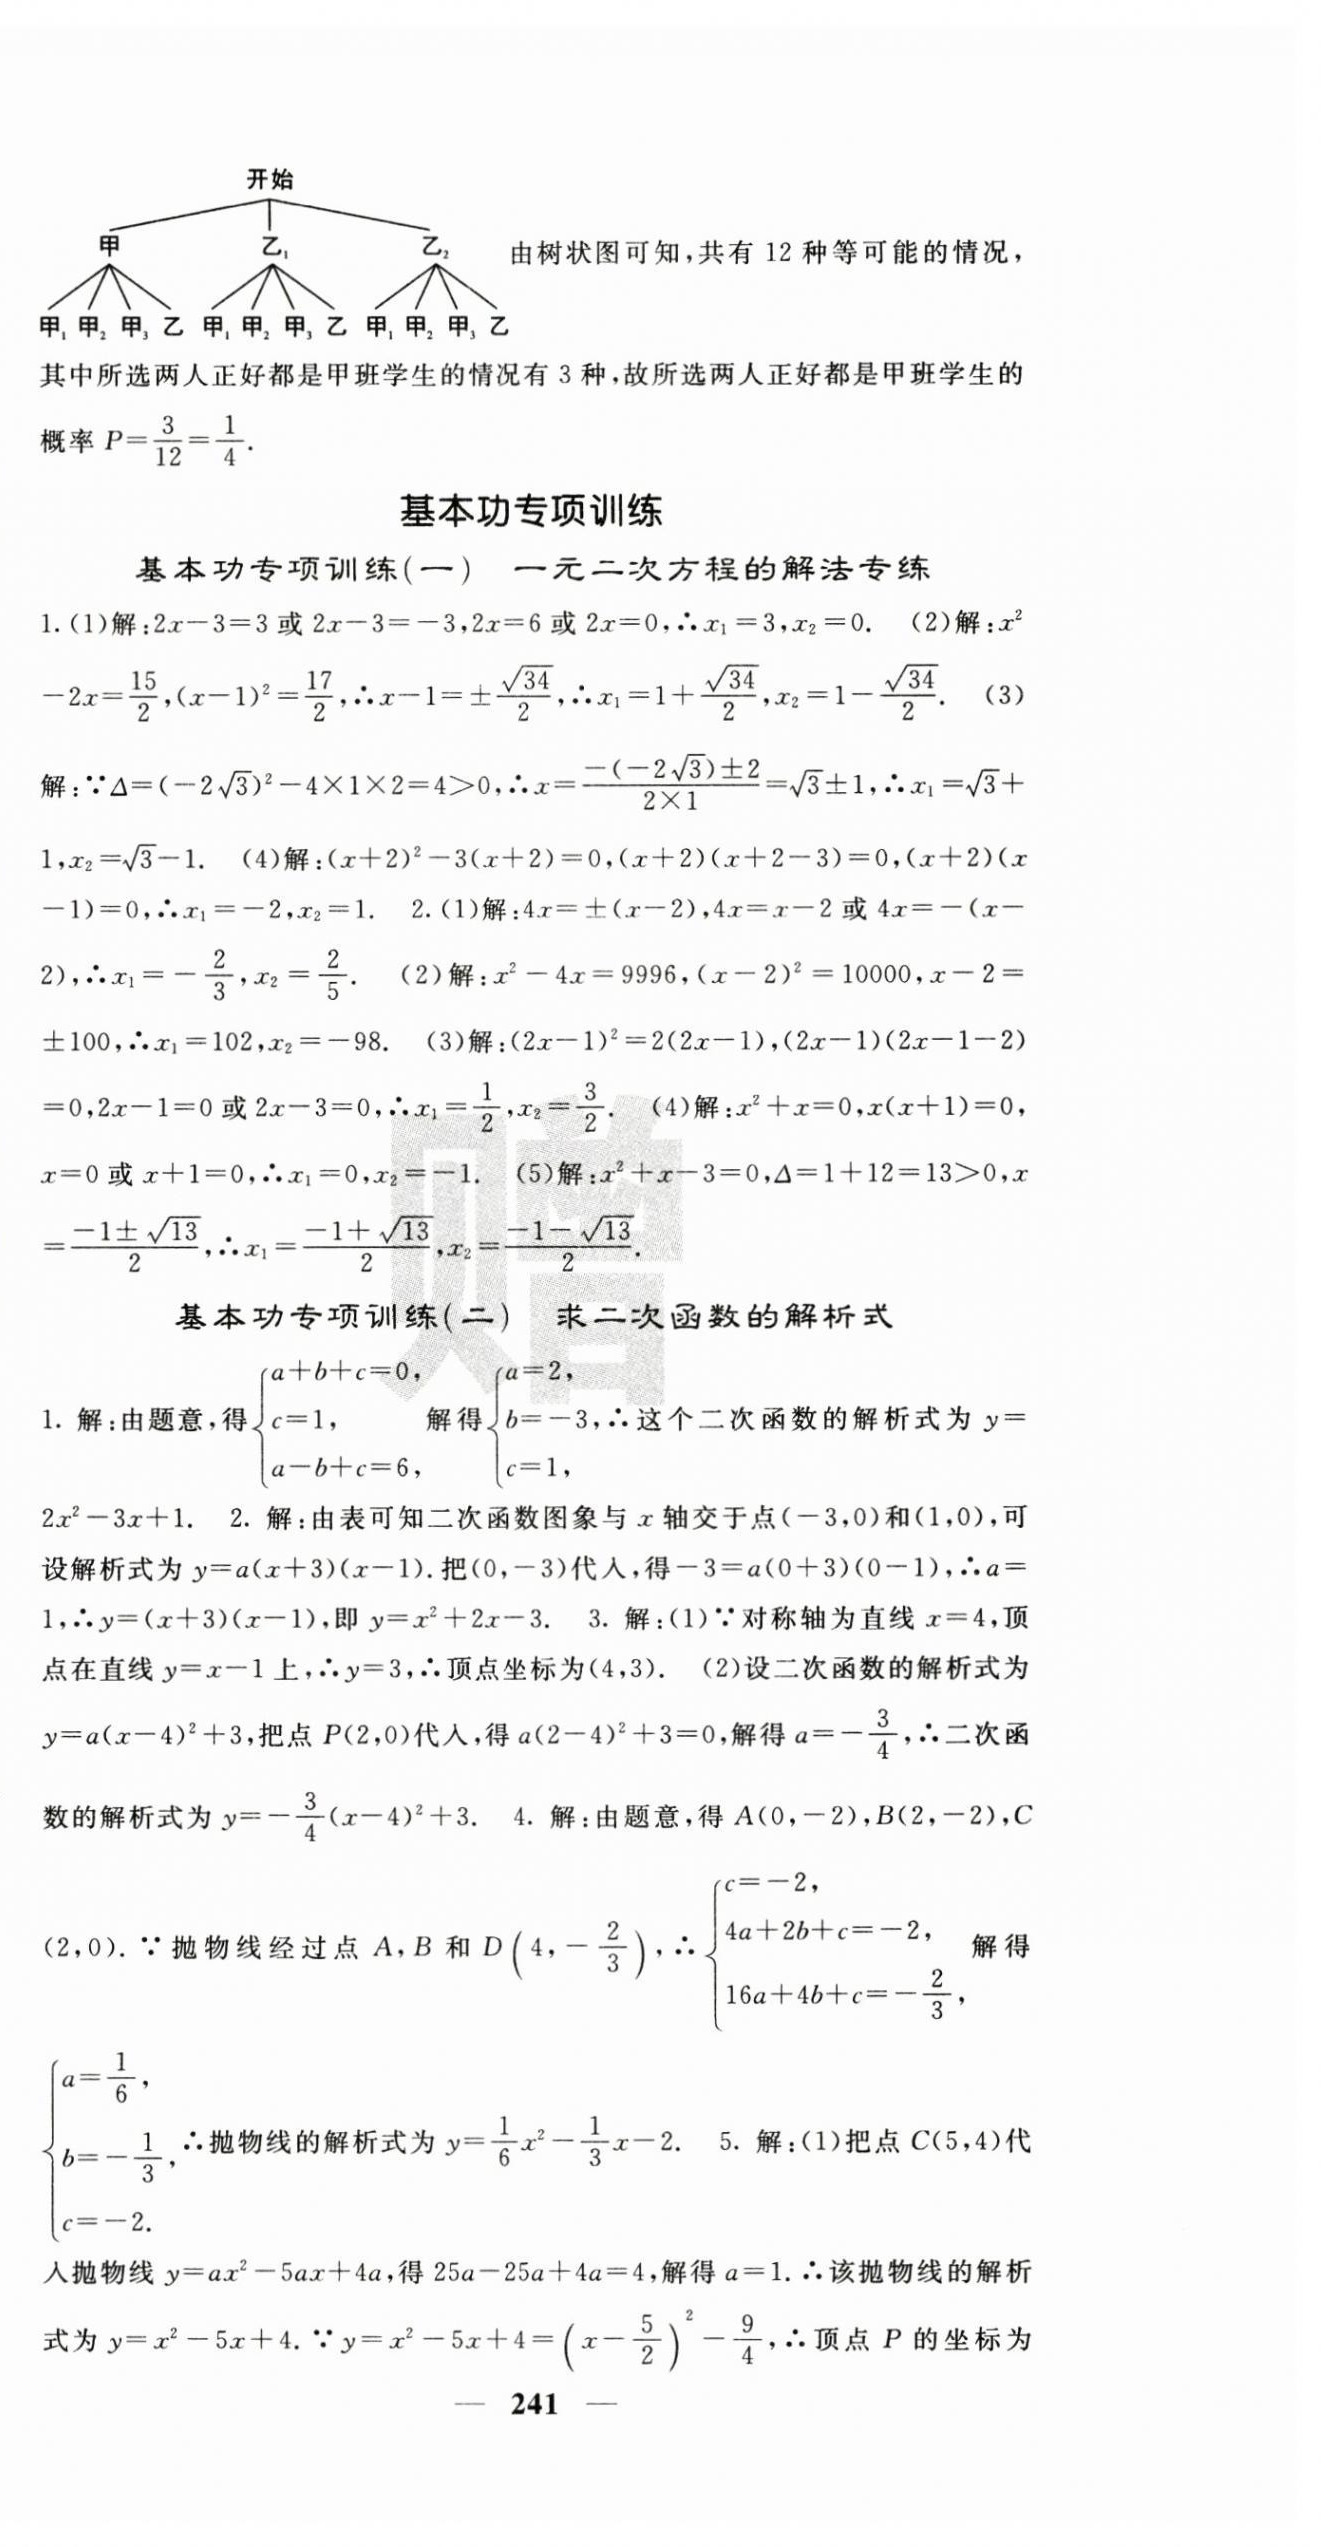 开始
甲 乙₁ 乙₂ 由树状图可知,共有 12 种等可能的情况,
甲₁ 甲₂ 甲₃ 乙 甲₁ 甲₂ 甲₃ 乙 甲₁ 甲₂ 甲₃ 乙
其中所选两人正好都是甲班学生的情况有 3 种,故所选两人正好都是甲班学生的
概率 P=3/12=1/4.
基本功专项训练
基本功专项训练(一) 一元二次方程的解法专练
1. (1)解:2x-3=3 或 2x-3=-3,2x=6 或 2x=0,∴x₁=3,x₂=0. (2)解:x²
-2x=15/2,(x-1)²=17/2,∴x-1=±√34/2,∴x₁=1+√34/2,x₂=1-√34/2. (3)
解:∵Δ=(-2√3)²-4×1×2=4>0,∴x=(-(-2√3)±2)/(2×1)=√3±1,∴x₁=√3+
1,x₂=√3-1. (4)解:(x+2)²-3(x+2)=0,(x+2)(x+2-3)=0,(x+2)(x
-1)=0,∴x₁=-2,x₂=1. 2. (1)解:4x=±(x-2),4x=x-2 或 4x=-(x-
2),∴x₁=-2/3,x₂=2/5. (2)解:x²-4x=9996,(x-2)²=10000,x-2=
±100,∴x₁=102,x₂=-98. (3)解:(2x-1)²=2(2x-1),(2x-1)(2x-1-2)
=0,2x-1=0 或 2x-3=0,∴x₁=1/2,x₂=3/2. (4)解:x²+x=0,x(x+1)=0,
x=0 或 x+1=0,∴x₁=0,x₂=-1. (5)解:x²+x-3=0,Δ=1+12=13>0,x
=(-1±√13)/2,∴x₁=(-1+√13)/2,x₂=(-1-√13)/2.
赠
基本功专项训练(二) 求二次函数的解析式
1. 解:由题意,得{a+b+c=0, c=1, a-b+c=6, 解得{a=2, b=-3, c=1, ∴这个二次函数的解析式为 y=
2x²-3x+1. 2. 解:由表可知二次函数图象与 x 轴交于点(-3,0)和(1,0),可
设解析式为 y=a(x+3)(x-1).把(0,-3)代入,得-3=a(0+3)(0-1),∴a=
1,∴y=(x+3)(x-1),即 y=x²+2x-3. 3. 解:(1)∵对称轴为直线 x=4,顶
点在直线 y=x-1 上,∴y=3,∴顶点坐标为(4,3). (2)设二次函数的解析式为
y=a(x-4)²+3,把点 P(2,0)代入,得 a(2-4)²+3=0,解得 a=-3/4,∴二次函
数的解析式为 y=-3/4(x-4)²+3. 4. 解:由题意,得 A(0,-2),B(2,-2),C
(2,0).∵抛物线经过点 A,B 和 D(4,-2/3),∴{c=-2, 4a+2b+c=-2, 16a+4b+c=-2/3, 解得
{a=1/6, b=-1/3, c=-2. ∴抛物线的解析式为 y=1/6x²-1/3x-2. 5. 解:(1)把点 C(5,4)代
入抛物线 y=ax²-5ax+4a,得 25a-25a+4a=4,解得 a=1.∴该抛物线的解析
式为 y=x²-5x+4.∵y=x²-5x+4=(x-5/2)²-9/4,∴顶点 P 的坐标为
— 241 —